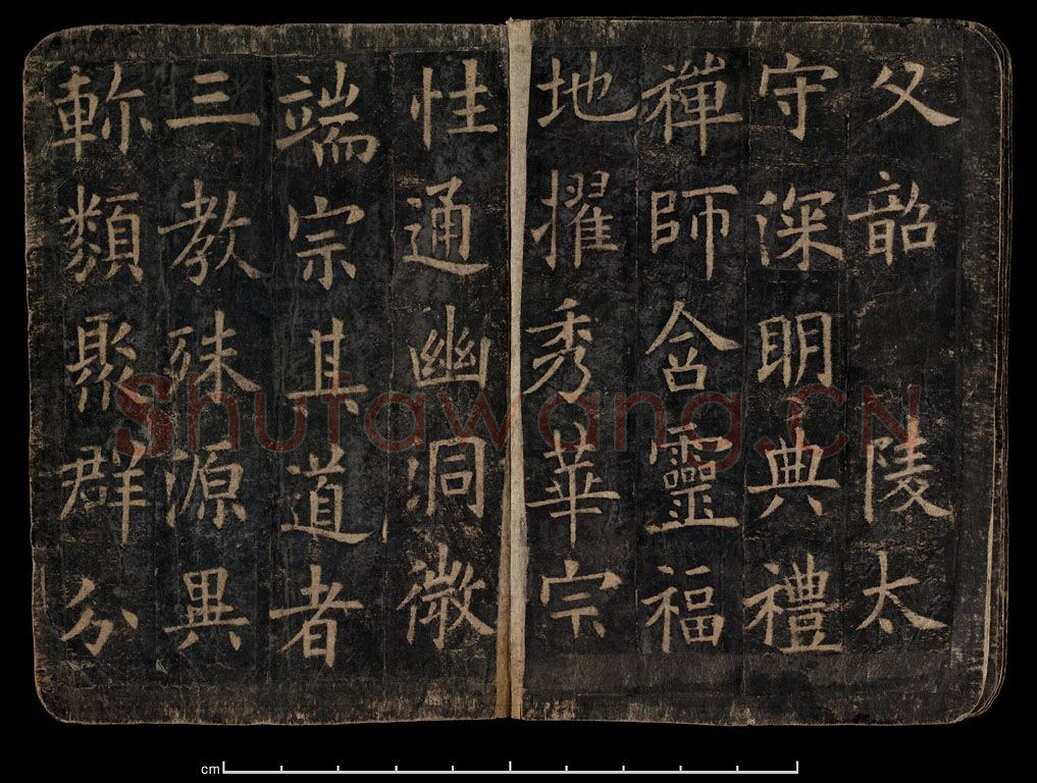 父韶陵太
守深明典禮
禪師含靈福
地擢秀華宗
性通幽洞微
端宗其道者
三教殊源異
軫類聚群分
Shufawang.CN
cm